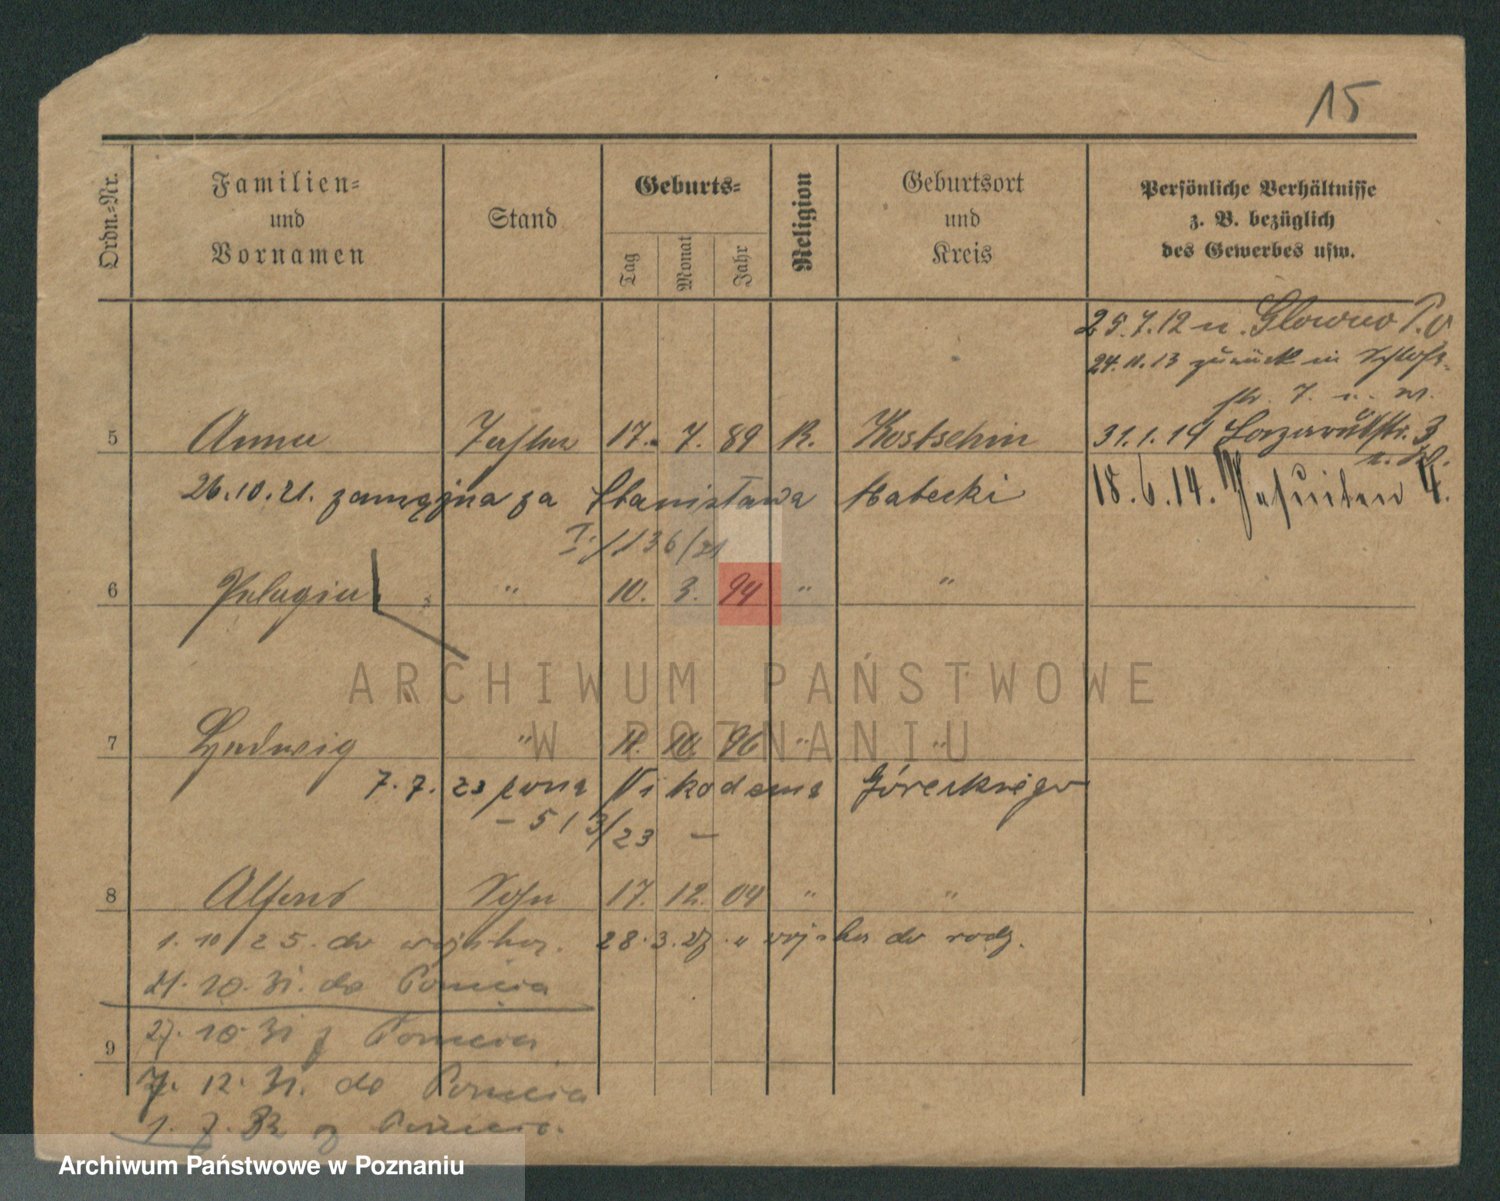 15
Ordn.-Nr.
Familien-
und
Vornamen
Stand
Geburts-
Tag
Monat
Jahr
Religion
Geburtsort
und
Kreis
Persönliche Verhältnisse
z. B. bezüglich
des Gewerbes usw.
25.7.12 n. Glowno
24.11.13 zurück in Schloß-
str. 7.
5 Anna Tochter 17. 7. 89 K. Kostschin 31.1.14 Lazarettstr. 3
26.10.21. zamężna za Stanisława Małecki 18.6.14. Jesuiten 4.
1136/21
6 Pelagia " 10. 3. 94 " "
ARCHIWUM PAŃSTWOWE
W POZNANIU
7 Hedwig " 11. 10. 96 " "
7.7.23 żona Nikodema Góreckiego
- 513/23 -
8 Alfons Sohn 17. 12. 04 " "
1.10/25. do wojska. 28.3.27. z wojska do rodz.
21.10.31. do
27.10.31 z
9
7.12.31. do
1.7.32 z
Archiwum Państwowe w Poznaniu